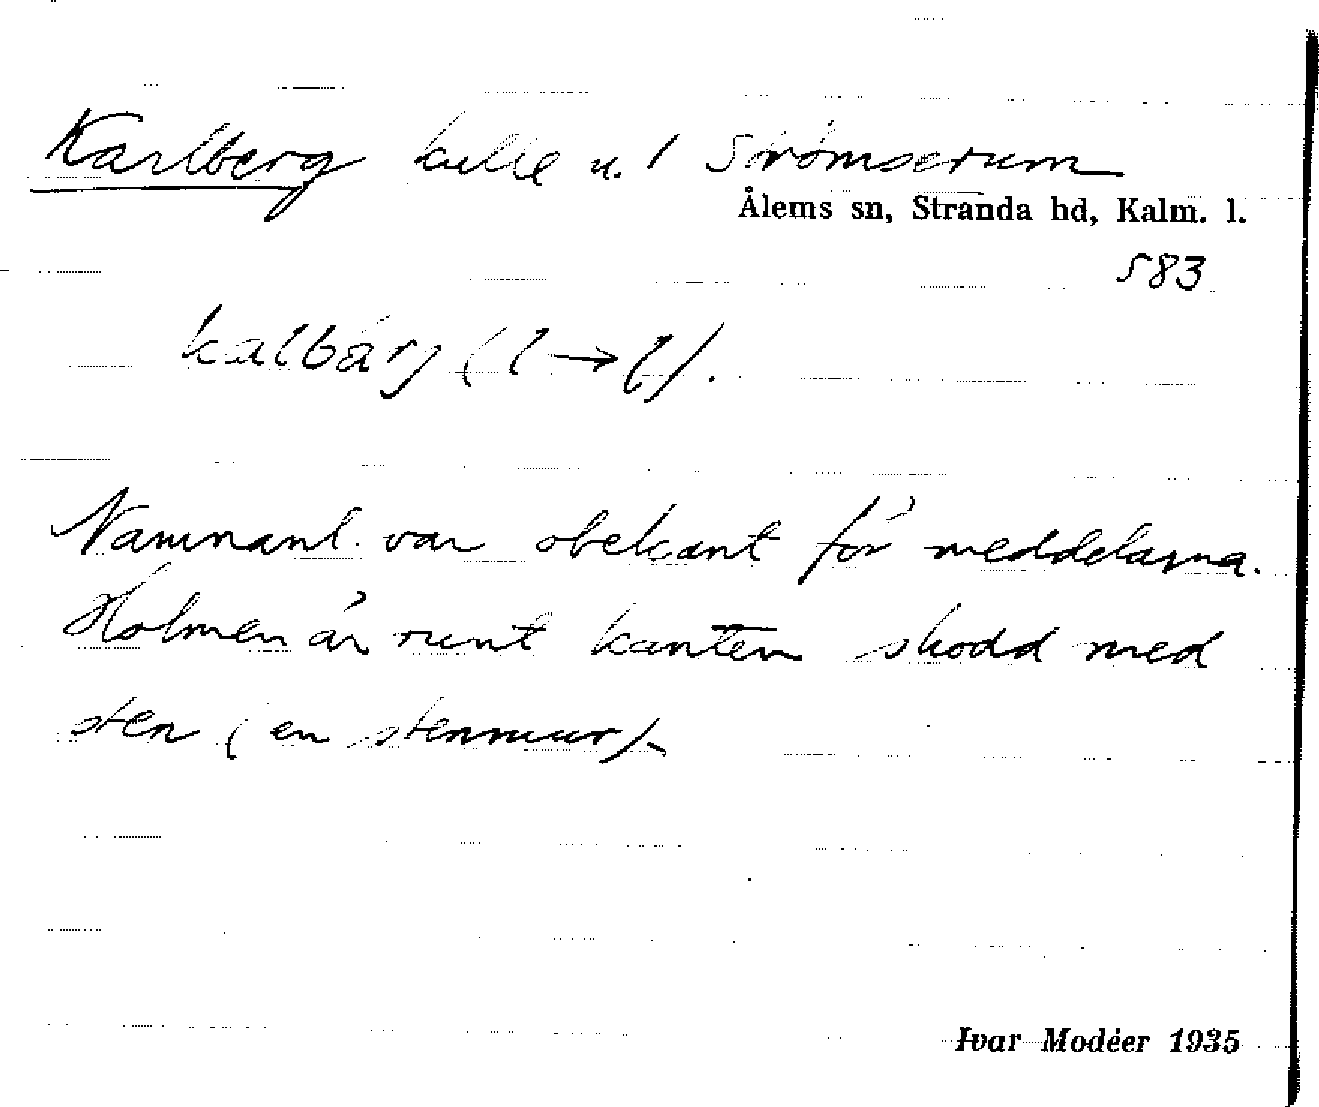 Karlberg kulle u. 1 Strömserum
Ålems sn, Stranda hd, Kalm. l.
583
kalbärj (l → ļ).
Namnanl. var obekant för meddelarna.
Holmen är runt kanten skodd med
sten (en stenmur).
Ivar Modéer 1935